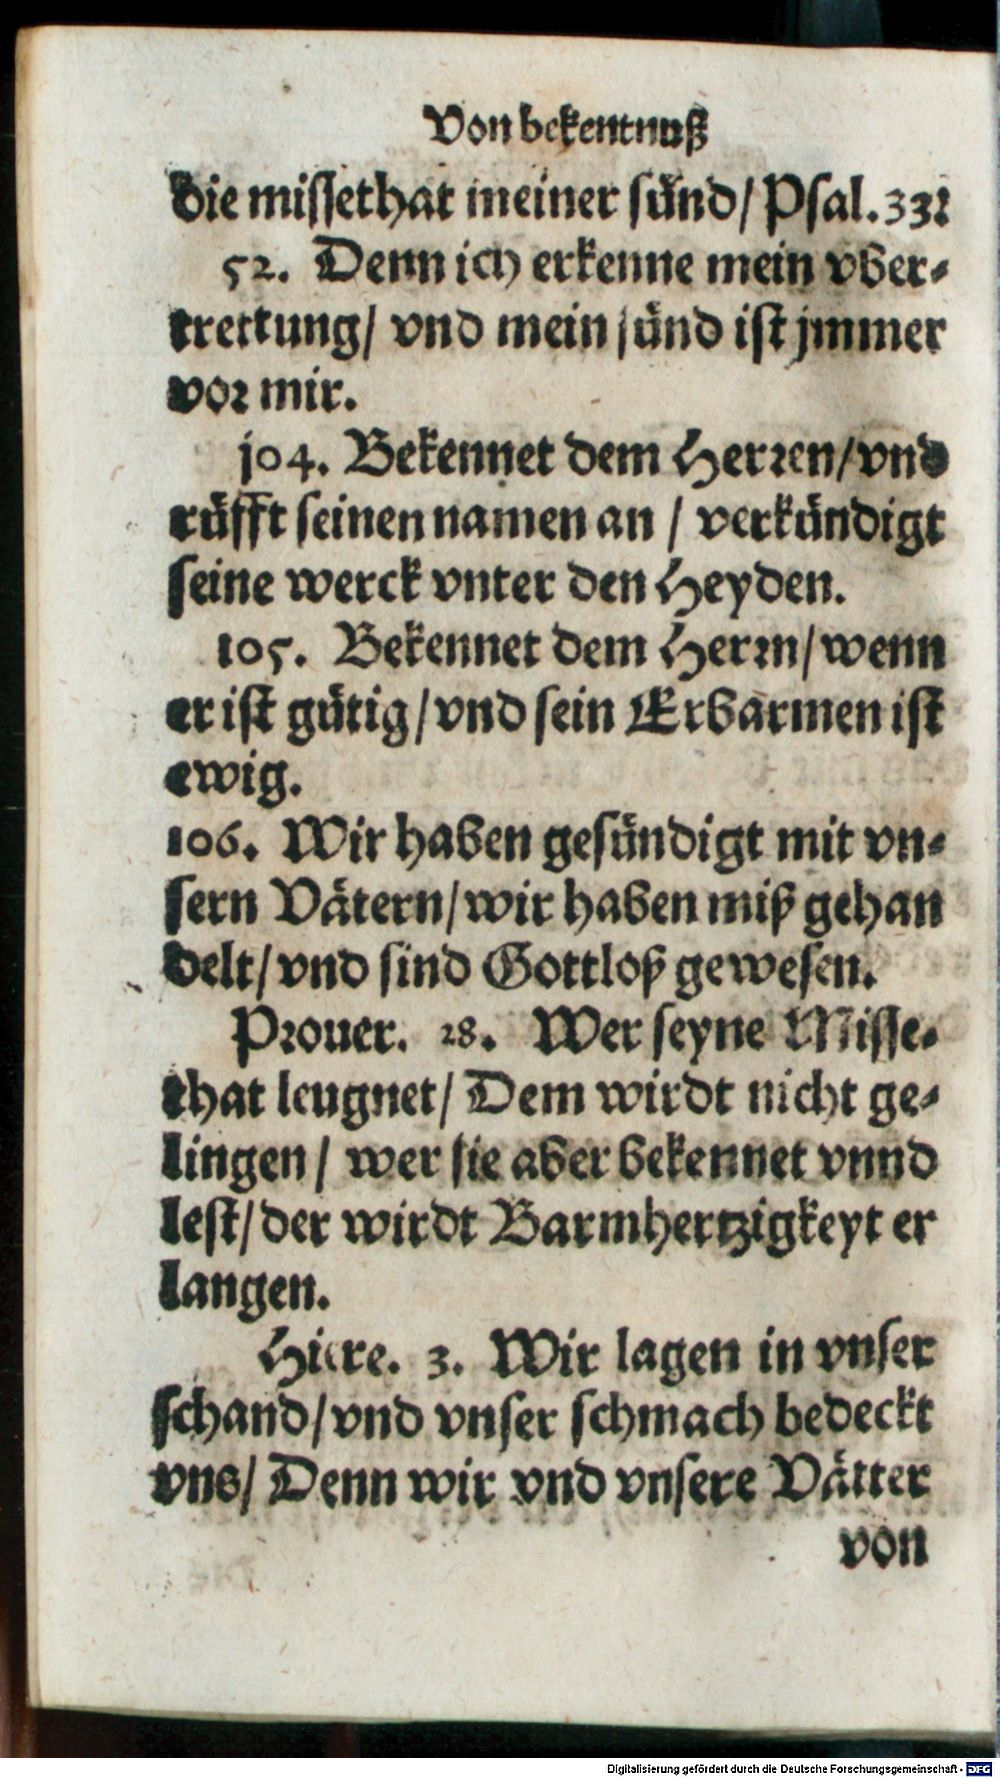 Von bekentnuß
die missethat meiner sünd/ Psal. 332
52. Denn ich erkenne mein vber-
trettung/ vnd mein sünd ist jmmer
vor mir.
104. Bekennet dem Herren/ vnd
rüfft seinen namen an / verkündigt
seine werck vnter den Heyden.
105. Bekennet dem Herrn/ wenn
er ist gütig/ vnd sein Erbarmen ist
ewig.
106. Wir haben gesündigt mit vn-
sern Vätern/ wir haben miß gehan
delt/ vnd sind Gottloß gewesen.
Prouer. 28. Wer seyne Misse-
that leugnet/ Dem wirdt nicht ge-
lingen / wer sie aber bekennet vnnd
lest/ der wirdt Barmhertzigkeyt er
langen.
Hiere. 3. Wir lagen in vnser
schand/ vnd vnser schmach bedeckt
vns/ Denn wir vnd vnsere Vätter
von
Digitalisierung gefördert durch die Deutsche Forschungsgemeinschaft - DFG